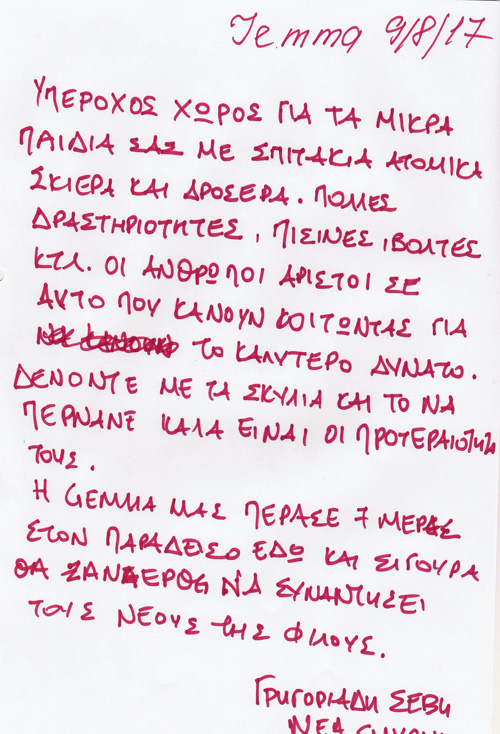 Jemma 9/8/17
ΥΠΕΡΟΧΟΣ ΧΩΡΟΣ ΓΙΑ ΤΑ ΜΙΚΡΑ
ΠΑΙΔΙΑ ΣΑΣ ΜΕ ΣΠΙΤΑΚΙΑ ΑΤΟΜΙΚΑ
ΣΚΙΕΡΑ ΚΑΙ ΔΡΟΣΕΡΑ. ΠΟΛΛΕΣ
ΔΡΑΣΤΗΡΙΟΤΗΤΕΣ, ΠΙΣΙΝΕΣ, ΒΟΛΤΕΣ
ΚΤΛ. ΟΙ ΑΝΘΡΩΠΟΙ ΑΡΙΣΤΟΙ ΣΕ
ΑΥΤΟ ΠΟΥ ΚΑΝΟΥΝ ΚΟΙΤΩΝΤΑΣ ΓΙΑ
ΤΟ ΚΑΛΥΤΕΡΟ ΔΥΝΑΤΟ.
ΔΕΝΟΝΤΕ ΜΕ ΤΑ ΣΚΥΛΙΑ ΚΑΙ ΤΟ ΝΑ
ΠΕΡΝΑΝΕ ΚΑΛΑ ΕΙΝΑΙ ΟΙ ΠΡΟΤΕΡΑΙΟΤΗΤΑ
ΤΟΥΣ.
Η GEMMA ΜΑΣ ΠΕΡΑΣΕ 7 ΜΕΡΕΣ
ΣΤΟΝ ΠΑΡΑΔΕΙΣΟ ΕΔΩ ΚΑΙ ΣΙΓΟΥΡΑ
ΘΑ ΞΑΝΑΕΡΘΕΙ ΝΑ ΣΥΝΑΝΤΗΣΕΙ
ΤΟΥΣ ΝΕΟΥΣ ΤΗΣ ΦΙΛΟΥΣ.
ΓΡΗΓΟΡΙΑΔΗ ΣΕΒΗ
ΝΕΑ